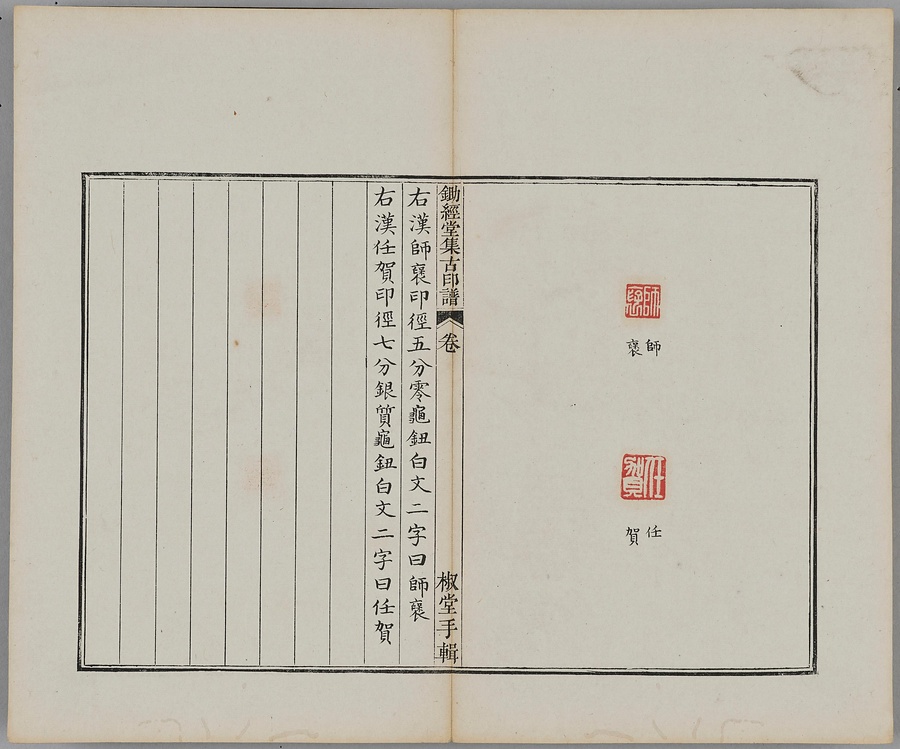 師褱
師
褱
任賀
任
賀
鋤經堂集古印譜 卷 椒堂手輯
右漢師褱印徑五分零龜鈕白文二字曰師褱
右漢任賀印徑七分銀質龜鈕白文二字曰任賀